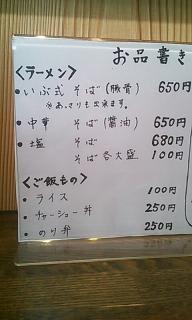 お品書き
<ラーメン>
• いぶ式 そば(豚骨) 650円
※あっさりも出来ます。
• 中華 そば(醤油) 650円
• 塩 そば 680円
そば各大盛 100円
<ご飯もの>
• ライス 100円
• チャーシュー丼 250円
• のり弁 250円